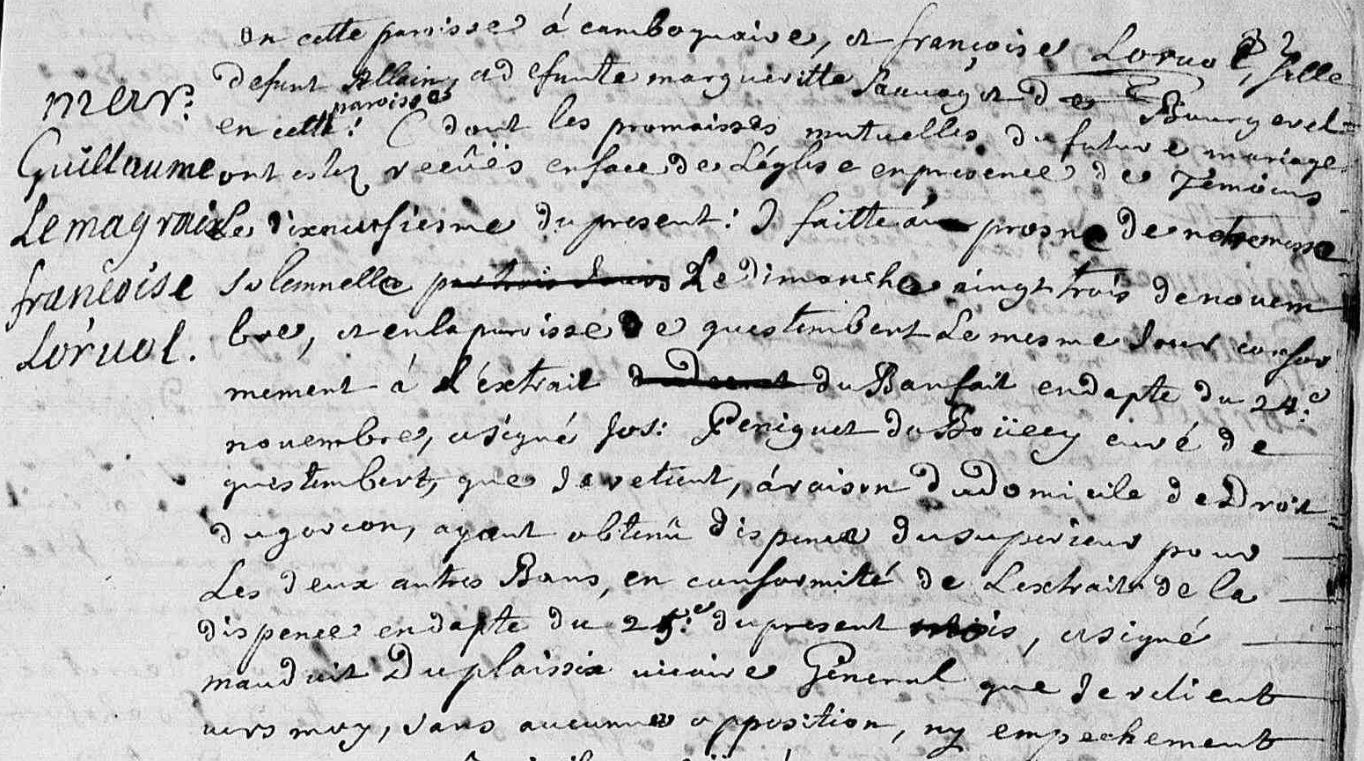 mar.
Guillaume
Lemagraix
françoise
Loruol.
en cette paroisse á camboquaire, et françoise Loruol, fille
defunt Allain, ad efunte margueritte Sauvaget de Bourgerel
en cette paroisse: dont les promaisses mutuelles du future mariage
ont estez recûës en face de L'église en presence de Témoins
Le dixneufiesme du present: I faitte au prosne de notre messe
solemnelle Le dimanche vingt trois de novem
bre, et en la paroisse de questembert Le mesme Jour confor
mement á L'éxtrait du Ban fait en dapte du 24.e
novembre, et signé Jos: Peniguet du Boüecy curé de
questembert, que Je retient, á raison du Domicile de Droit
du garcon, ayant obtenû dispence du superieur pour
Les deux autres Bans, en conformité de L'extrait de la
dispence en dapte du 25.e du present mois, et signé
mauduit Duplaissix vicaire Géneral que Je retient
vers moy, sans aucunne opposition, ny empechement